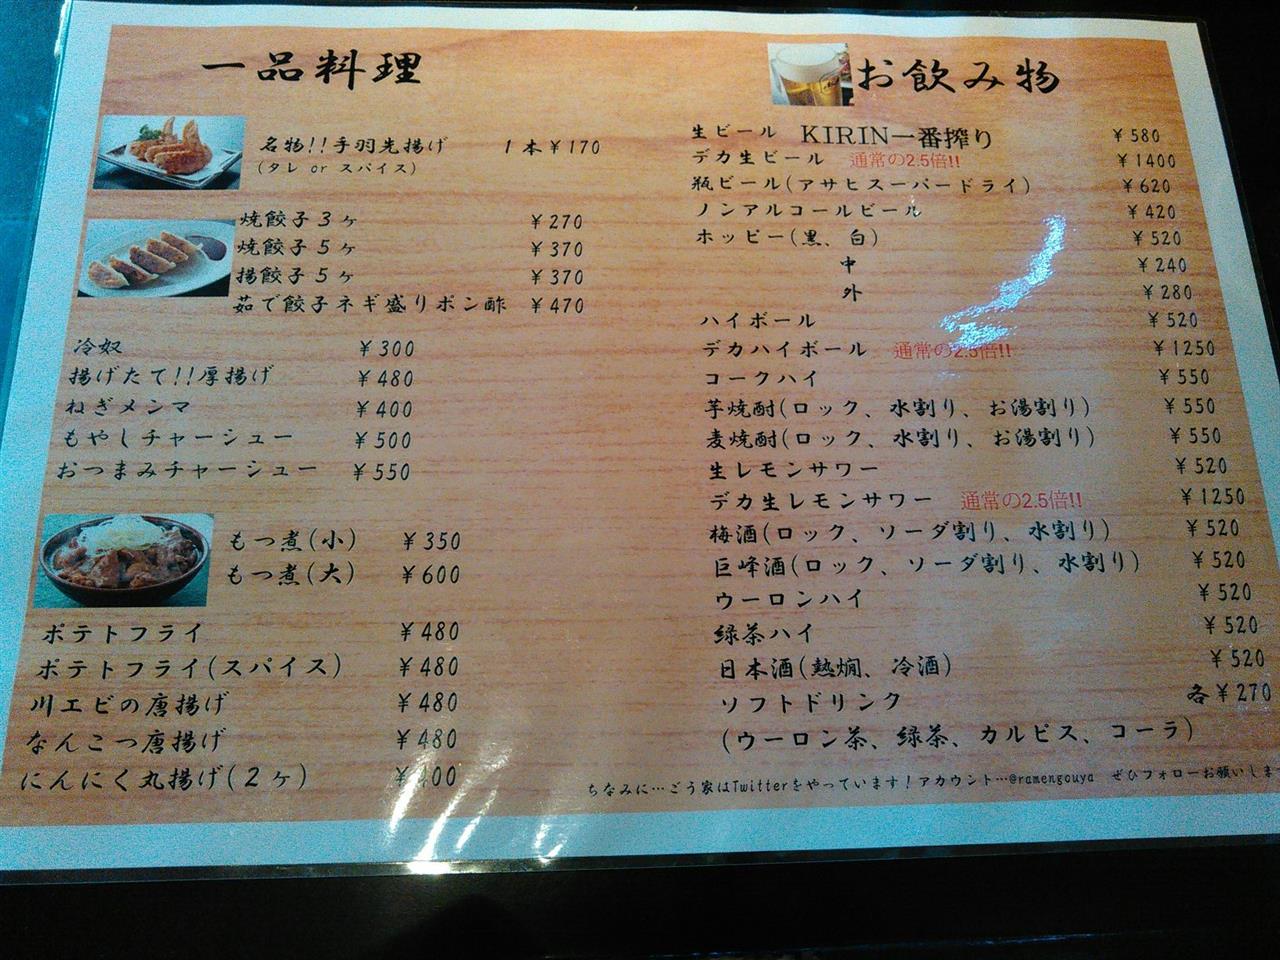 一品料理
名物!!手羽先揚げ 1本¥170
(タレ or スパイス)
焼餃子3ヶ ¥270
焼餃子5ヶ ¥370
揚餃子5ヶ ¥370
茹で餃子ネギ盛りポン酢 ¥470
冷奴 ¥300
揚げたて!!厚揚げ ¥480
ねぎメンマ ¥400
もやしチャーシュー ¥500
おつまみチャーシュー ¥550
もつ煮(小) ¥350
もつ煮(大) ¥600
ポテトフライ ¥480
ポテトフライ(スパイス) ¥480
川エビの唐揚げ ¥480
なんこつ唐揚げ ¥480
にんにく丸揚げ(2ヶ) ¥400
お飲み物
生ビール KIRIN一番搾り ¥580
デカ生ビール 通常の2.5倍!! ¥1400
瓶ビール(アサヒスーパードライ) ¥620
ノンアルコールビール ¥420
ホッピー(黒、白) ¥520
中 ¥240
外 ¥280
ハイボール ¥520
デカハイボール 通常の2.5倍!! ¥1250
コークハイ ¥550
芋焼酎(ロック、水割り、お湯割り) ¥550
麦焼酎(ロック、水割り、お湯割り) ¥550
生レモンサワー ¥520
デカ生レモンサワー 通常の2.5倍!! ¥1250
梅酒(ロック、ソーダ割り、水割り) ¥520
巨峰酒(ロック、ソーダ割り、水割り) ¥520
ウーロンハイ ¥520
緑茶ハイ ¥520
日本酒(熱燗、冷酒) ¥520
ソフトドリンク 各¥270
(ウーロン茶、緑茶、カルピス、コーラ)
ちなみに…ごう家はTwitterをやっています!アカウント…@ramengouya ぜひフォローお願いしま